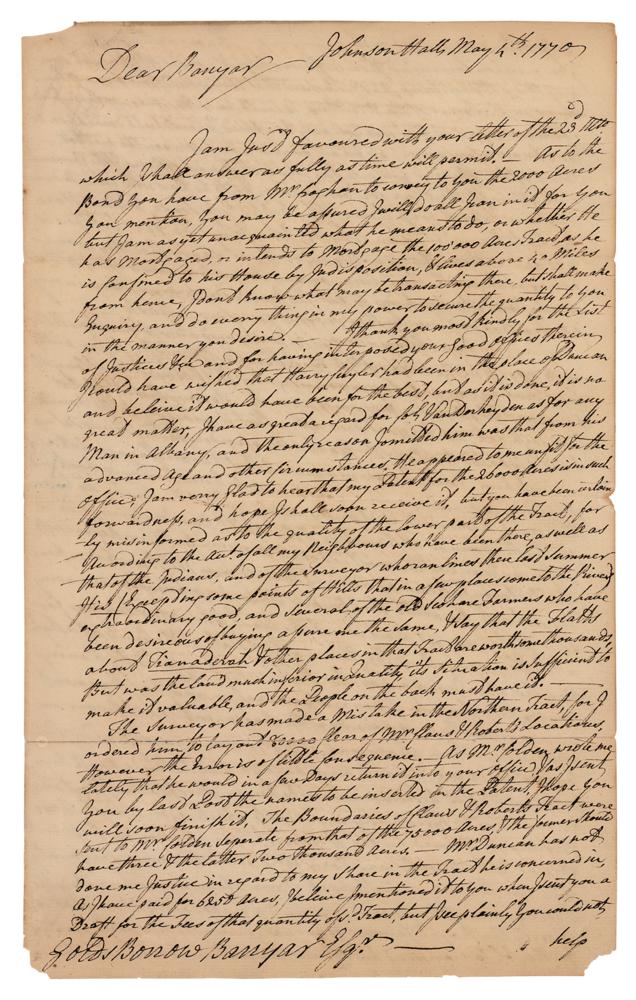 Johnson Hall May 4th. 1770
Dear Banyar
I am Just favoured with your letter of the 23d. Ulto
which I shall answer as fully as time will permit. — As to the
Bond you have from Mr. Croghan to convey to you the 2000 Acres
you mention, you may be assured I will do all I can in it for you
but I am as yet unacquainted what he means to do, or whether He
has Mortgaged, or intends to Mortgage the 100000 Acres Tract, as he
is confined to his House by Indisposition, & lives above 40 Miles
from hence, I don't know what may be transacting there, but shall make
Enquiry, and do every thing in my power to secure the quantity to you
in the manner you desire. — I thank you most kindly for the List
of Justices &ca and for having interposed your good offices therein
I could have wished that Harry Cuyler had been in the place of Duncan
and beleive it would have been for the best, but as it is done, it is no
great matter, I have as great a regard for Van Derheyden as for any
Man in Albany, and the only reason I omitted him was that from his
advanced Age and other circumstances, He appeared to me unfit for the
office; I am verry Glad to hear that my Patent for the 26000 Acres is in such
forwardness, and hope I shall soon receive it, but you have been certain
ly misinformed as to the quality of the lower part of the Tract, for
According to the Acct of all my Neighbours who have been there, as well as
that of the Indians, and of the Surveyor who ran lines there last Summer
It is (Excepding some points of Hills that in a few places come to the River)
extraordinary good, and several of the old Farmers who have
been desireous of buying a peice me the same, & say that the Flatts
about Tianaderah & other places in that Tract are worth some thousands,
But was the land much inferior in Quality its Situation is sufficient to
make it valuable, and the People on the back must have it. —
The Surveyor has made a Mistake in the Northern Tract, for I
ordered him to lay out 80000 clear of Mr. Claus's & Roberts Locations.
However the Error is of little consequence. — As Mr. Colden wrote me
lately that he would in a few Days return it into your Office I has sent
you by last Post the names to be inserted in the Patent. I hope you
will soon finish it. The Boundaries of Claus's & Roberts Tract were
sent to Mr. Colden seperate from that of the Acres, & the former should
have three & the latter Two thousand Acres. — Mr. Duncan has not
done me Justice in regard to my Share in the Tract he is concerned in,
as I have paid for 6250 Acres, I beleive I mentioned it to you when I sent you a
Draft for the Fees of that quantity of sd. Tract, but I see plainly you could not
Goldsborrow Banyar Esqr. — help